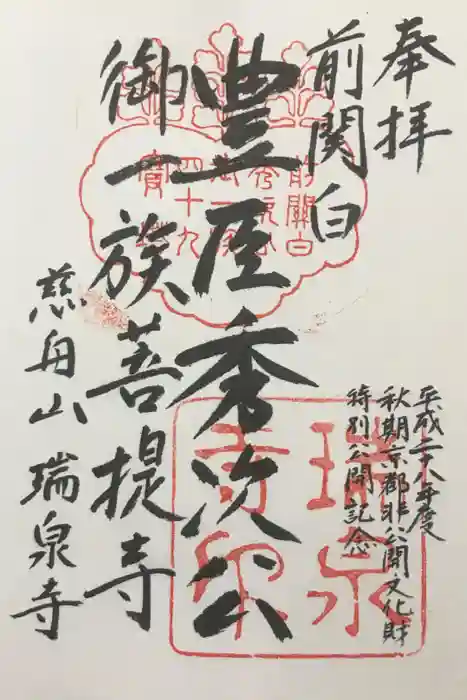 奉拝
前関白
豊臣秀次公
御一族菩提寺
慈舟山 瑞泉寺
平成二十八年度
秋期京都非公開文化財
特別公開記念
瑞泉
寺印
前關白
四十九